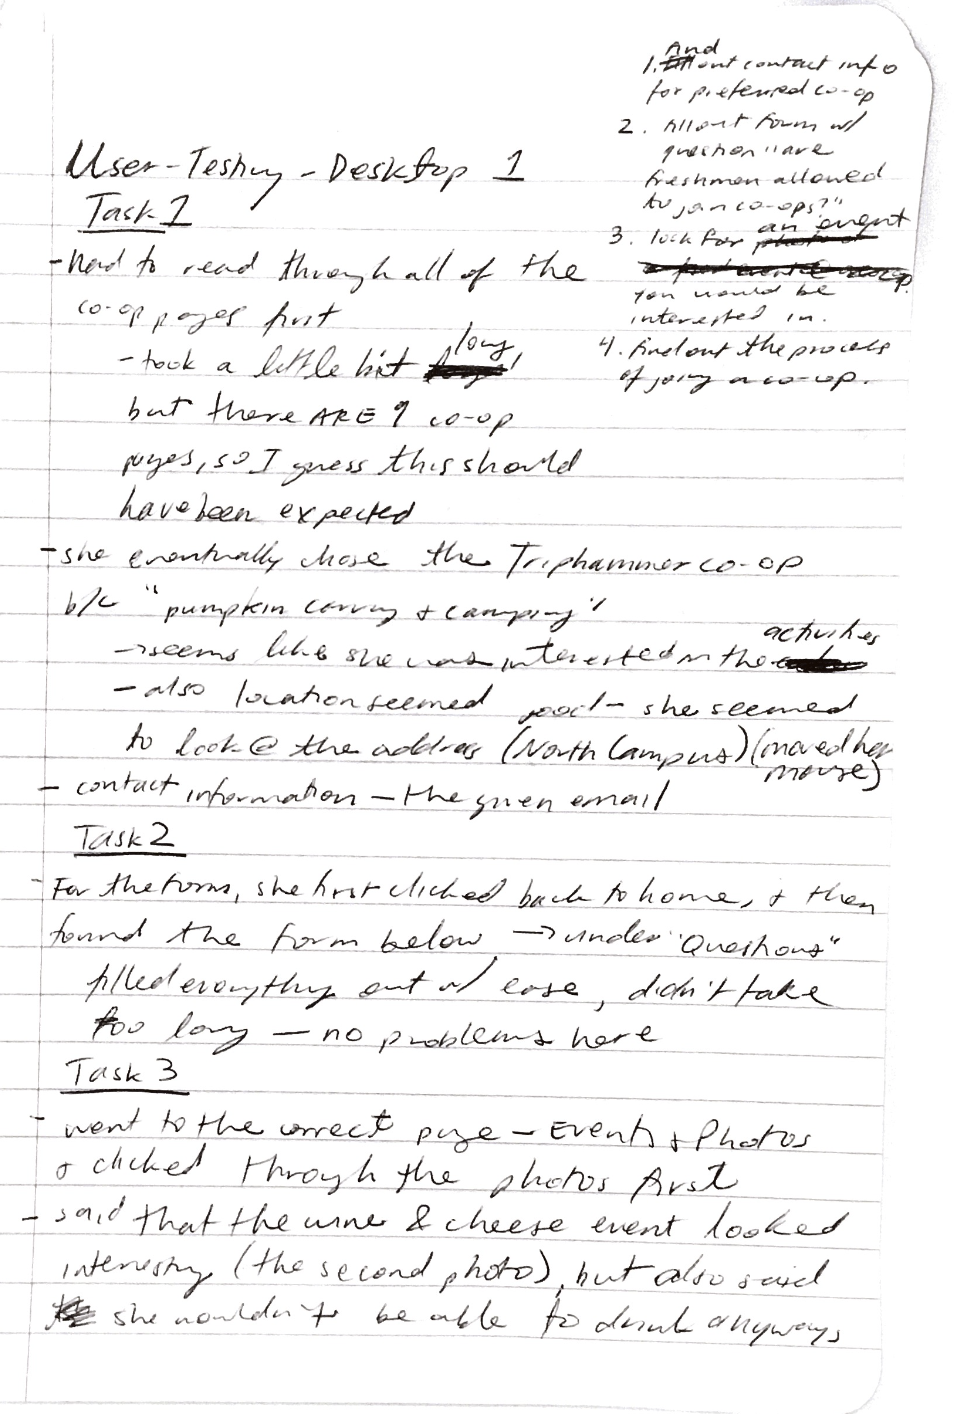 And
1. Fill out contact info
for preferred co-op
2. fill out form w/
question "are
freshmen allowed
to join co-ops?"
3. look for an event
you would be
interested in.
4. find out the process
of joing a co-op.
User-Testing - Desktop 1
Task 1
- had to read through all of the
co-op pages first
- took a little bit long,
but there ARE 9 co-op
pages, so I guess this should
have been expected
- she eventually chose the Triphammer co-op
b/c "pumpkin carving & camping"
→ seems like she was interested in the activities
- also location seemed good - she seemed
to look @ the address (North Campus) (moved her
mouse)
- contact information - the given email
Task 2
- For the form, she first clicked back to home, & then
found the form below → under "Questions"
filled everything out w/ ease, didn't take
too long - no problems here
Task 3
- went to the correct page - Events & Photos
& clicked through the photos first
- said that the wine & cheese event looked
interesting (the second photo), but also said
she wouldn't be able to drink anyways